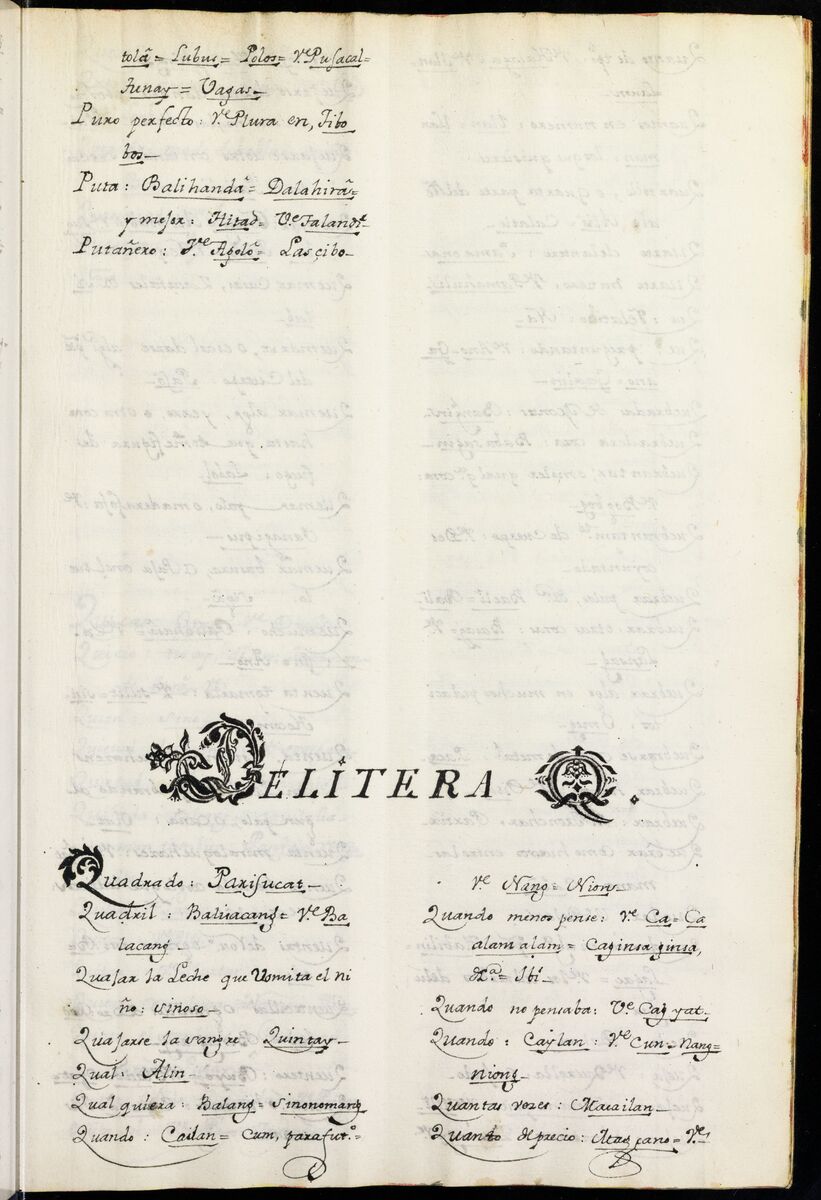 tolã = Lubus = Polos = Vᵉ Pusacal=
Tunay = Vagas_
Puro perfecto: Vᵉ Plura en, Tibo
bos_
Puta: Balihandâ = Dalahirâ=
y mejor: Hitad= Vᵉ
Putañero: Vᵉ Agolô= Lasçibo_
DE LITERA Q.
Quadrado: Parisucat_
Quadril: Balivacang= Vᵉ Ba
lacang_
Quajar la Leche que Vomita el ni
ño: sinoso_
Quajarse la sangre Quintay_
Qual: Alin_
Qual quiera: Balang= sinonomang
Quando: Cailan= Cum, para fut.º=
Vᵉ Nang= Niong_
Quando menos pense: Vᵉ Ca= Ca
alam alam= Caginsa ginsa,
Quando no pensaba: Vᵉ Cag yat_
Quando: Caylan: Vᵉ Cun= Nang=
niong_
Quantas vezes: Macailan_
Quanto de precio: pano= Vᵉ